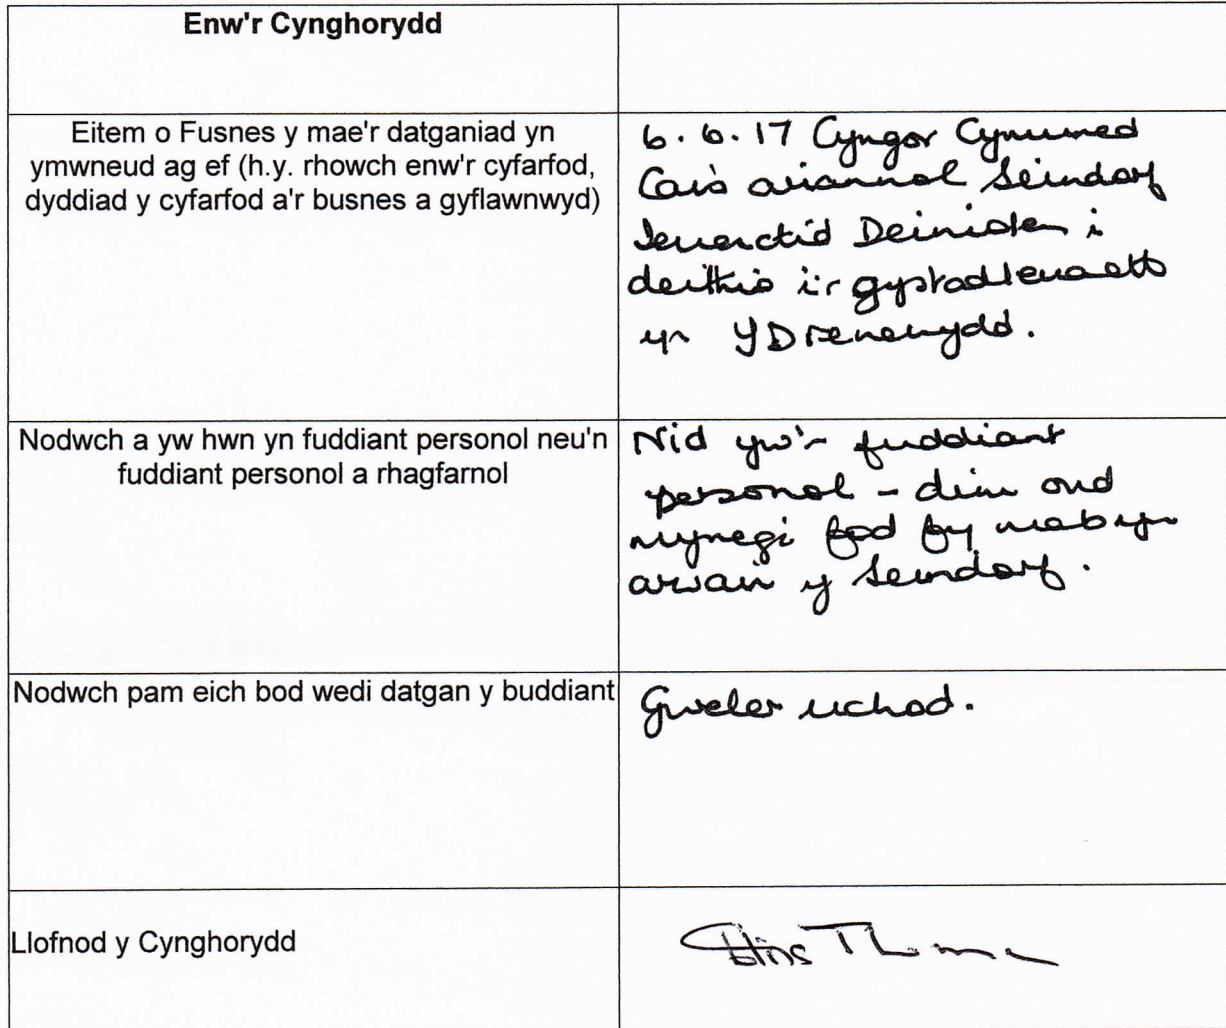 Enw'r Cynghorydd
Eitem o Fusnes y mae'r datganiad yn
ymwneud ag ef (h.y. rhowch enw'r cyfarfod,
dyddiad y cyfarfod a'r busnes a gyflawnwyd)
6.6.17 Cyngor Cymuned
Cais ariannol Seindorf
Ieuenctid Deiniolen i
deithio i'r gystadleuaeth
yn Y Drenewydd.
Nodwch a yw hwn yn fuddiant personol neu'n
fuddiant personol a rhagfarnol
Nid yw'n fuddiant
personol - dim ond
mynegi fod fy mab yn
arwain y Seindorf.
Nodwch pam eich bod wedi datgan y buddiant
Gweler uchod.
Llofnod y Cynghorydd